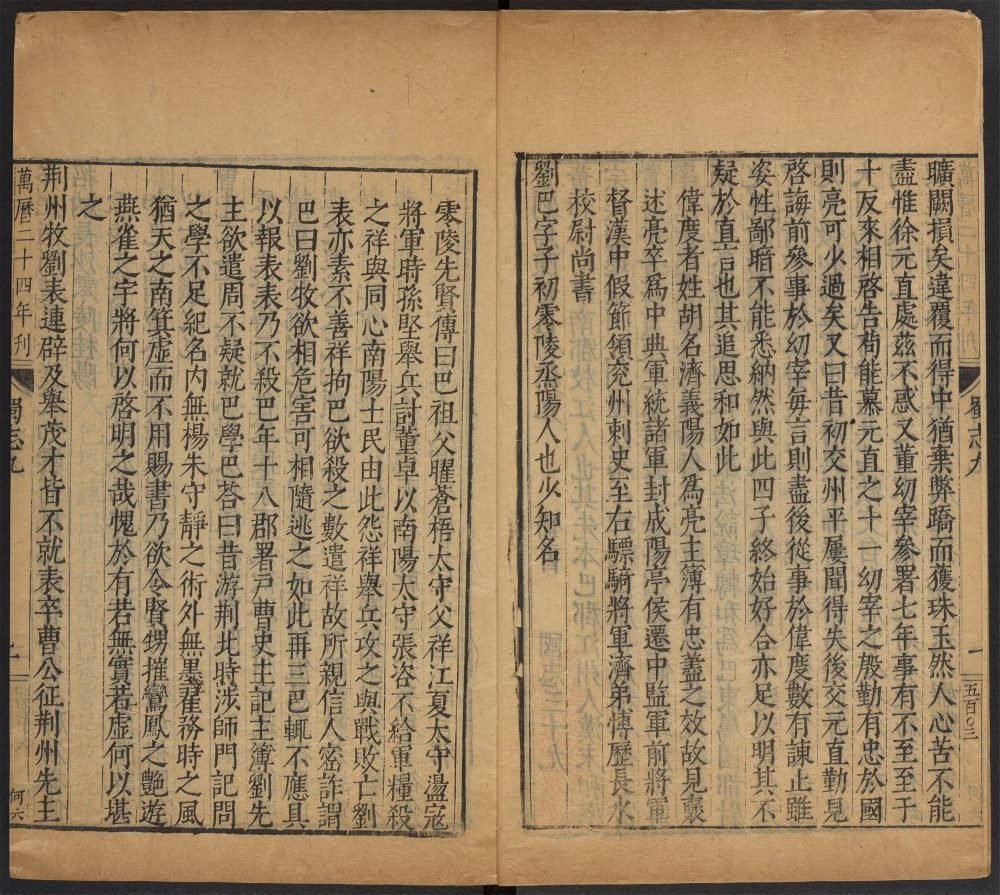 曠闕損矣違覆而得中猶棄弊蹻而獲珠玉然人心苦不能
盡惟徐元直處茲不惑又董幼宰參署七年事有不至至于
十反來相啓告苟能慕元直之十一幼宰之殷勤有忠於國
則亮可少過矣又曰昔初交州平屢聞得失後交元直勤見
啓誨前參事於幼宰每言則盡後從事於偉度數有諫止雖
姿性鄙暗不能悉納然與此四子終始好合亦足以明其不
疑於直言也其追思和如此
偉度者姓胡名濟義陽人為亮主簿有忠藎之效故見褒
述亮卒為中典軍統諸軍封成陽亭侯遷中監軍前將軍
督漢中假節領兖州刺史至右驃騎將軍濟弟愽歷長水
校尉尚書
劉巴字子初零陵烝陽人也少知名
蜀志九
一
五百〇三
零陵先賢傳曰巴祖父曜蒼梧太守父祥江夏太守盪寇
將軍時孫堅舉兵討董卓以南陽太守張咨不給軍糧殺
之祥與同心南陽士民由此怨祥舉兵攻之與戰敗亡劉
表亦素不善祥拘巴欲殺之數遣祥故所親信人密詐謂
巴曰劉牧欲相危害可相隨逃之如此再三巴輒不應具
以報表表乃不殺巴年十八郡署戸曹史主記主簿劉先
主欲遣周不疑就巴學巴荅曰昔游荆北時涉師門記問
之學不足紀名内無楊朱守靜之術外無墨翟務時之風
猶天之南箕虛而不用賜書乃欲令賢甥摧鸞鳳之艶遊
燕雀之宇將何以啓明之哉愧於有若無實若虛何以堪
之
荆州牧劉表連辟及舉茂才皆不就表卒曹公征荆州先主
萬曆二十四年刋
蜀志九